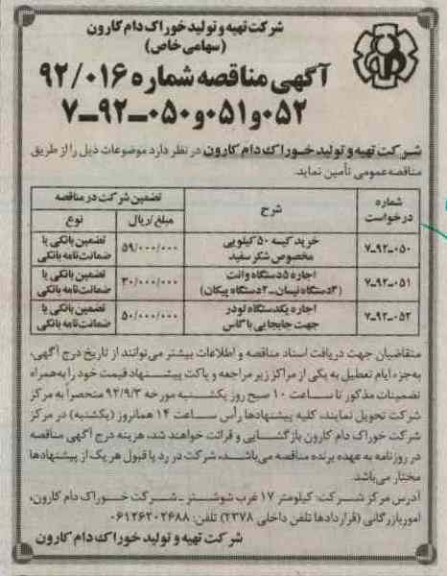 شرکت تهیه و تولید خوراک دام کارون
(سهامی خاص)
آگهی مناقصه شماره ۹۲/۰۱۶
۰۵۲ و ۰۵۱ و ۰۵۰-۹۲-۷
شرکت تهیه و تولید خوراک دام کارون در نظر دارد موضوعات ذیل را از طریق
مناقصه عمومی تأمین نماید.
شماره درخواست شرح تضمین شرکت در مناقصه
مبلغ/ریال نوع
۷-۹۲-۰۵۰ خرید کیسه ۵۰ کیلویی مخصوص شکر سفید ۵۹/۰۰۰/۰۰۰ تضمین بانکی یا ضمانت‌نامه بانکی
۷-۹۲-۰۵۱ اجاره ۵ دستگاه وانت (۳ دستگاه نیسان-۲ دستگاه پیکان) ۳۰/۰۰۰/۰۰۰ تضمین بانکی یا ضمانت‌نامه بانکی
۷-۹۲-۰۵۲ اجاره یکدستگاه لودر جهت جابجایی باگاس ۵۰/۰۰۰/۰۰۰ تضمین بانکی یا ضمانت‌نامه بانکی
متقاضیان جهت دریافت اسناد مناقصه و اطلاعات بیشتر می‌توانند از تاریخ درج آگهی،
به‌جزء ایام تعطیل به یکی از مراکز زیر مراجعه و پاکت پیشنهاد قیمت خود را به‌همراه
تضمینات مذکور تا ساعت ۱۰ صبح روز یکشنبه مورخه ۹۲/۹/۳ منحصراً به مرکز
شرکت تحویل نمایند، کلیه پیشنهادها رأس ساعت ۱۴ همانروز (یکشنبه) در مرکز
شرکت خوراک دام کارون بازگشایی و قرائت خواهند شد، هزینه درج آگهی مناقصه
در روزنامه به عهده برنده مناقصه می‌باشد، شرکت در رد یا قبول هر یک از پیشنهادها
مختار می‌باشد
آدرس مرکز شرکت: کیلومتر ۱۷ غرب شوشتر - شرکت خوراک دام کارون،
امور بازرگانی (قراردادها تلفن داخلی ۲۳۷۸) تلفن: ۰۶۱۲۶۲۰۲۶۸۸
شرکت تهیه و تولید خوراک دام کارون